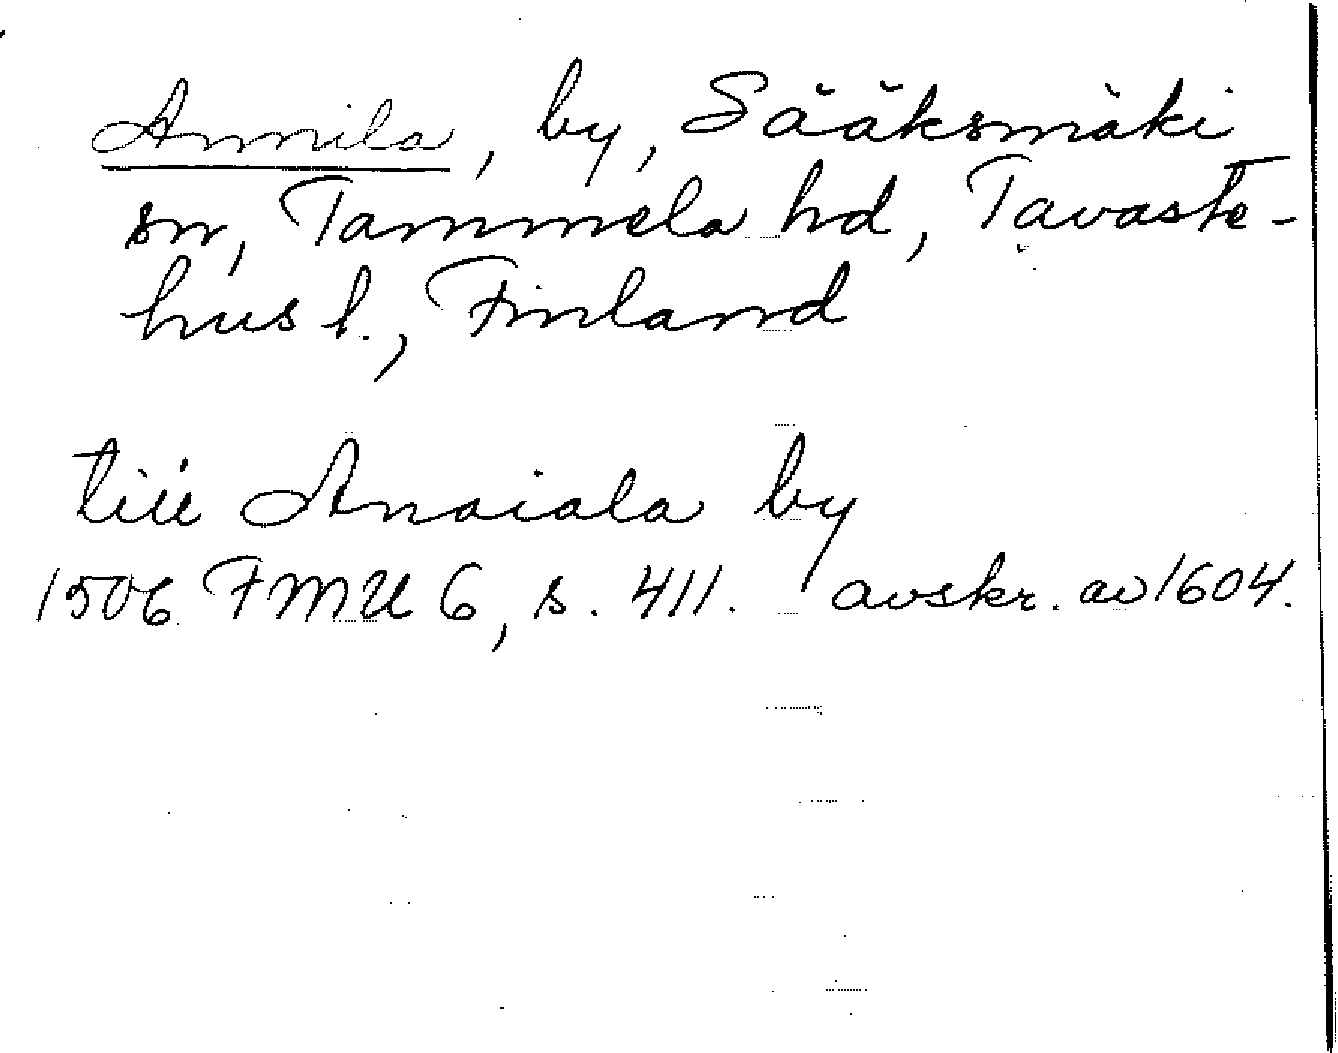 Annila, by, Sääksmäki
sn, Tammela hd, Tavaste-
hus l., Finland
till Anaiala by
1506 FMU 6, s. 411. avskr. av 1604.